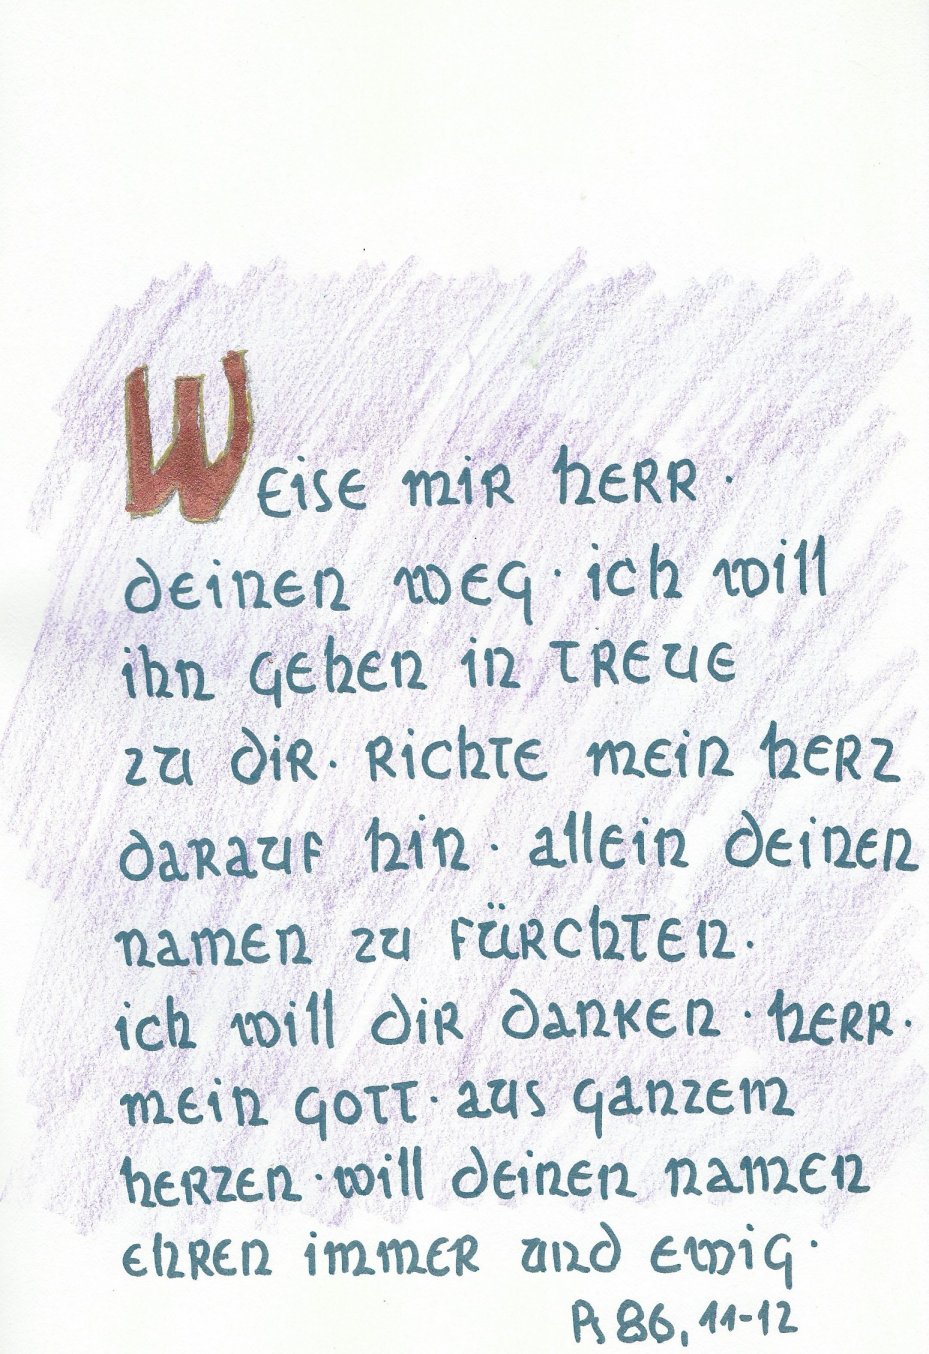 Weise mir herr ·
deinen weg · ich will
ihn gehen in treue
zu dir · richte mein herz
darauf hin · allein deinen
namen zu fürchten ·
ich will dir danken · herr ·
mein gott · aus ganzem
herzen · will deinen namen
ehren immer und ewig ·
Ps 86, 11-12